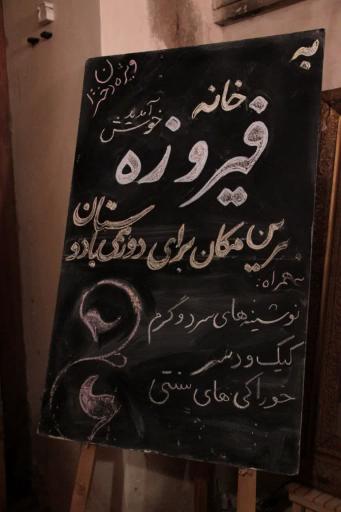 به
خانه
فیروزه
خوش آمدید
ویژه دختران
بهترین مکان برای دورهمی با دوستان
به همراه:
نوشیدنی های سرد و گرم
کیک و دسر
خوراکی های سنتی